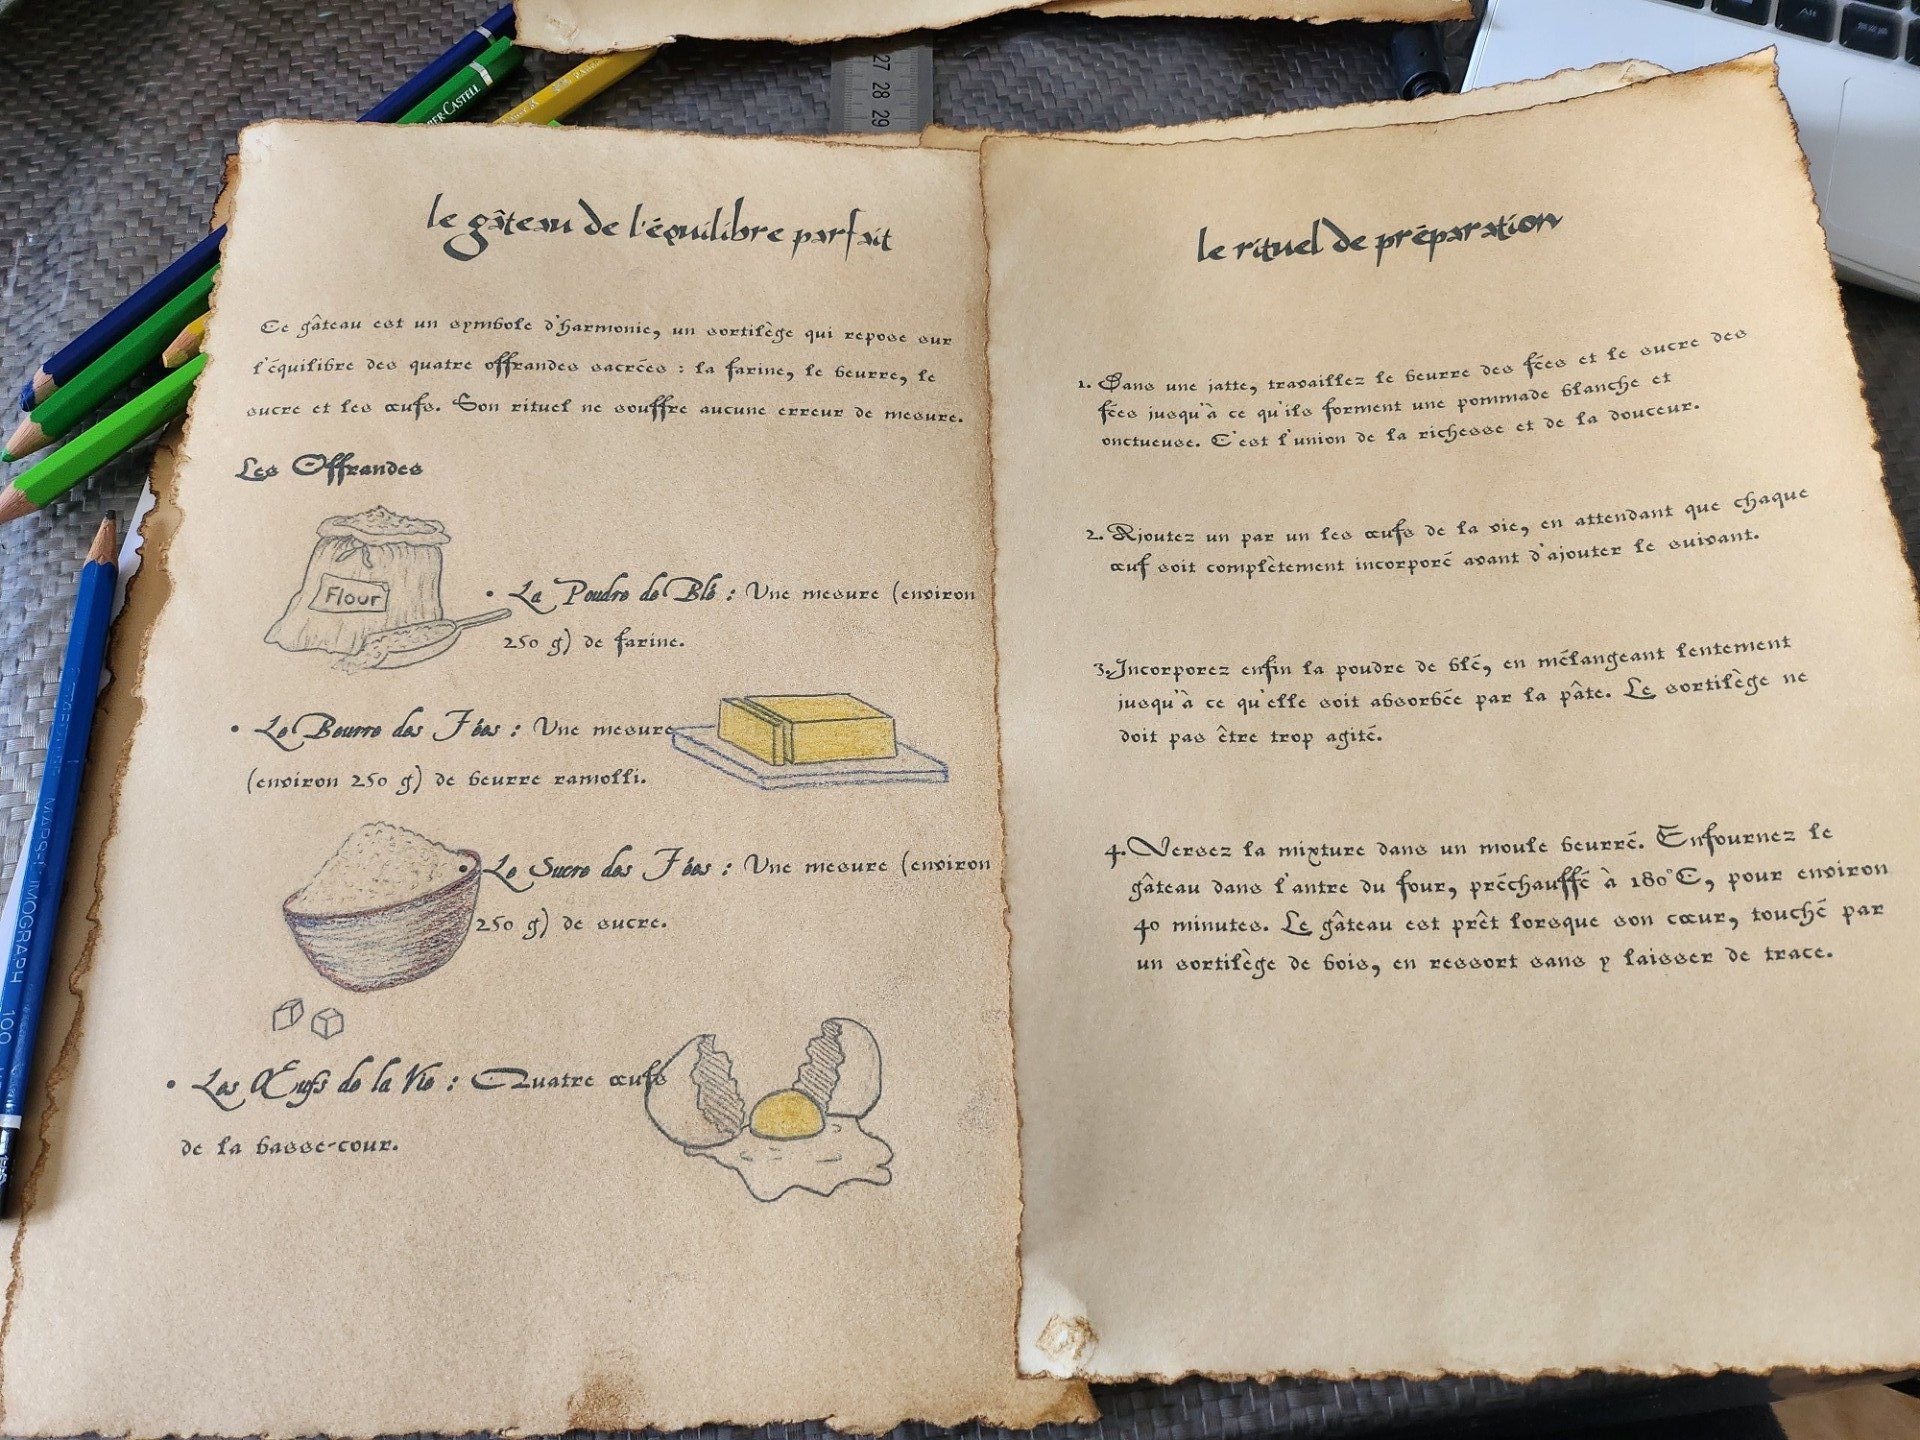 27
28
29
BER CASTELL
le gâteau de l'équilibre parfait
Ce gâteau est un symbole d'harmonie, un sortilège qui repose sur
l'équilibre des quatre offrandes sacrées : la farine, le beurre, le
sucre et les œufs. Son rituel ne souffre aucune erreur de mesure.
Les Offrandes
Flour
• La Poudre de Blé : Une mesure (environ
250 g) de farine.
• Le Beurre des Fées : Une mesure
(environ 250 g) de beurre ramolli.
• Le Sucre des Fées : Une mesure (environ
250 g) de sucre.
• Les Œufs de la Vie : Quatre œufs
de la basse-cour.
LUMOGRAPH 100
le rituel de préparation
1. Dans une jatte, travaillez le beurre des fées et le sucre des
fées jusqu'à ce qu'ils forment une pommade blanche et
onctueuse. C'est l'union de la richesse et de la douceur.
2. Ajoutez un par un les œufs de la vie, en attendant que chaque
œuf soit complètement incorporé avant d'ajouter le suivant.
3. Incorporez enfin la poudre de blé, en mélangeant lentement
jusqu'à ce qu'elle soit absorbée par la pâte. Le sortilège ne
doit pas être trop agité.
4. Versez la mixture dans un moule beurré. Enfournez le
gâteau dans l'antre du four, préchauffé à 180°C, pour environ
40 minutes. Le gâteau est prêt lorsque son cœur, touché par
un sortilège de bois, en ressort sans y laisser de trace.